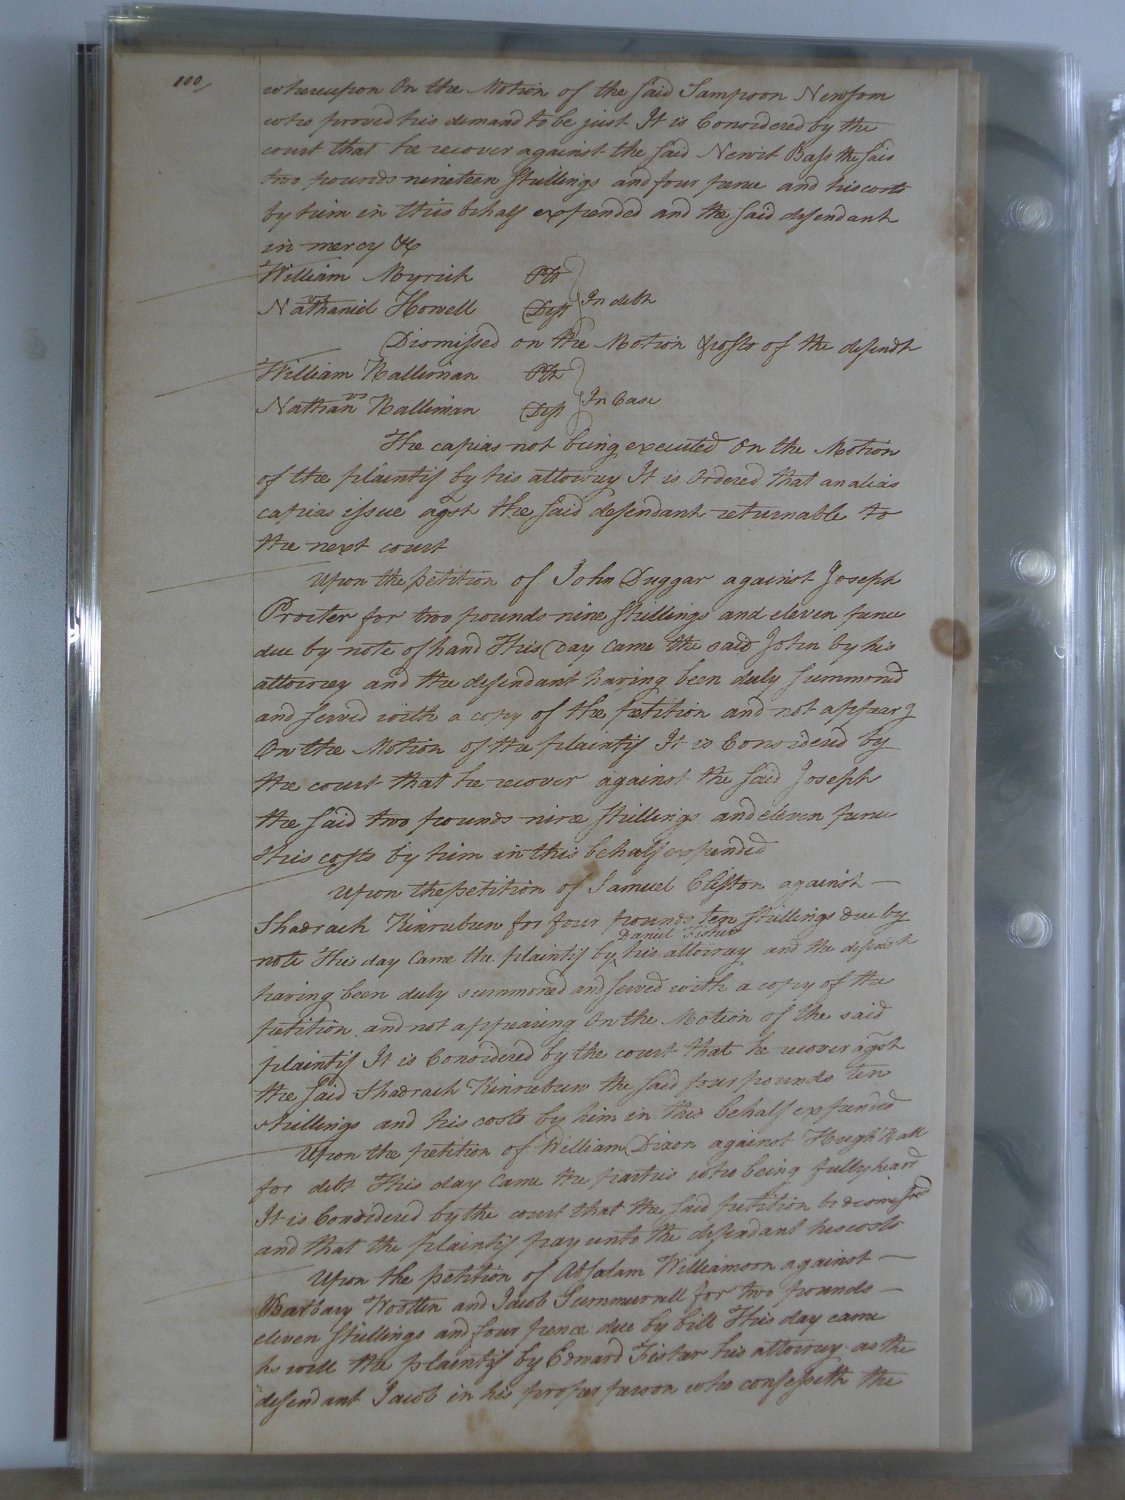 100/
whereupon On the Motion of the said Sampson Newsom
who proved his demand to be just It is Considered by the
court that he recover against the said Newit Bass the said
two pounds nineteen Shillings and four pence and his costs
by him in this behalf expended and the said defendant
in mercy &c
William Myrick Plt
vs In debt
Nathaniel Howell Deft
Dismissed on the Motion & costs of the defendt
William Kallinian Plt
vs In Case
Nathan Kalliman Deft
The capias not being executed On the Motion
of the plaintif by his attorney It is Ordered that an alias
capias issue agst the said defendant returnable to
the next court
Upon the petition of John Duggar against Joseph
Procter for two pounds nine Shillings and eleven pence
due by note of hand This Day came the said John by his
attorney and the defendant having been duly summoned
and served with a copy of the petition and not appearg
On the Motion of the plaintif It is Considered by
the court that he recover against the said Joseph
the said two pounds nine Shillings and eleven pence
& his costs by him in this behalf expended
Upon the petition of Samuel Clifton against
Shadrach Kinnebrew for four pounds ten Shillings due by
Daniel Fisher
note This day Came the plaintif by his attorney and the defendt
having been duly summoned and served with a copy of the
petition and not appearing On the Motion of the said
plaintif It is Considered by the court that he recover agst
the said Shadrach Kinnebrew the said four pounds ten
shillings and his costs by him in this behalf expended
Upon the petition of William Dixon against Hugh Hall
for debt This day Came the parties who being fully heard
It is Considered by the court that the said petition be dismissed
and that the plaintif pay unto the defendant his costs
Upon the petition of Absalam Williamson against
Barbary Wootten and Jacob Turnmurell for two pounds
eleven Shillings and four pence due by bill This day came
as well the plaintif by Edward Fisher his attorney as the
defendant Jacob in his proper person who confesseth the